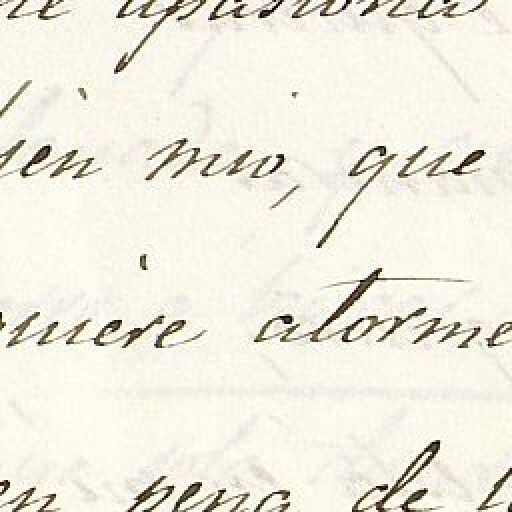 apasiona
bien mio, que
quiere atorme
en pena de l